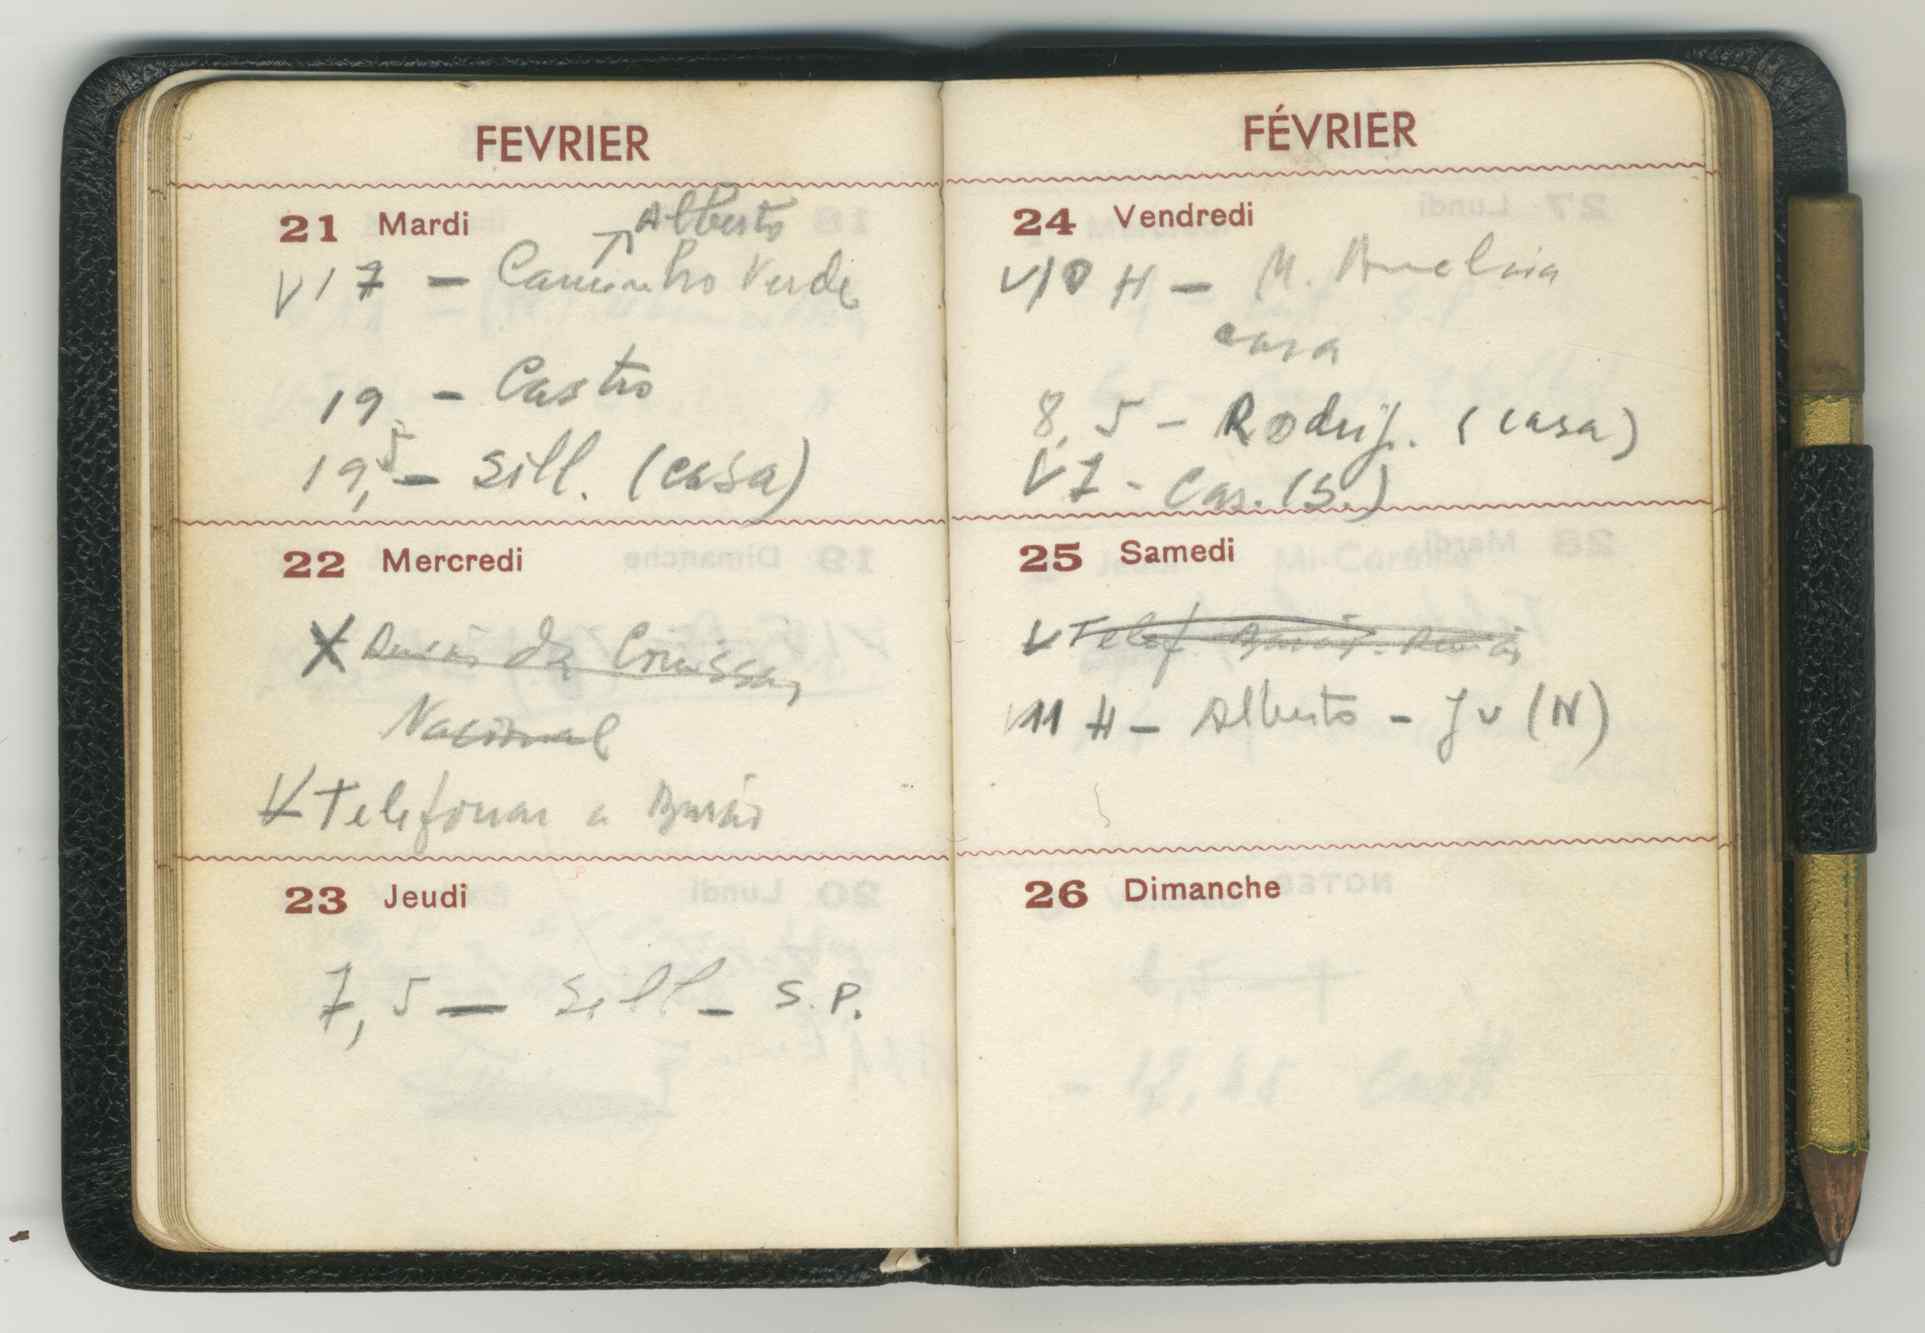 FEVRIER
21 Mardi
Alberto
V 17 — Caminho Verde
19 — Castro
19,5 — Sill. (casa)
22 Mercredi
X da Comissão
Nacional
V Telefonar a
23 Jeudi
7,5 — Sill — S.P.
FÉVRIER
24 Vendredi
V 10 H — M. Amelia
casa
8,5 — Rodrig. (casa)
V 7 - Cas. (S.)
25 Samedi
V Telef.
11 H — Alberto — Jv (N)
26 Dimanche